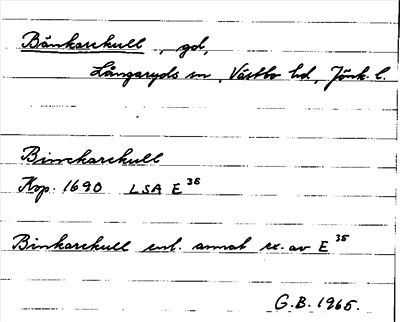 Bänkarekull, gd,
Långaryds sn, Västbo hd, Jönk. l.
Binckarekull
Kop. 1690 LSA E³⁵
Binkarekull enl. annat ex. av E³⁵
G.B. 1965.